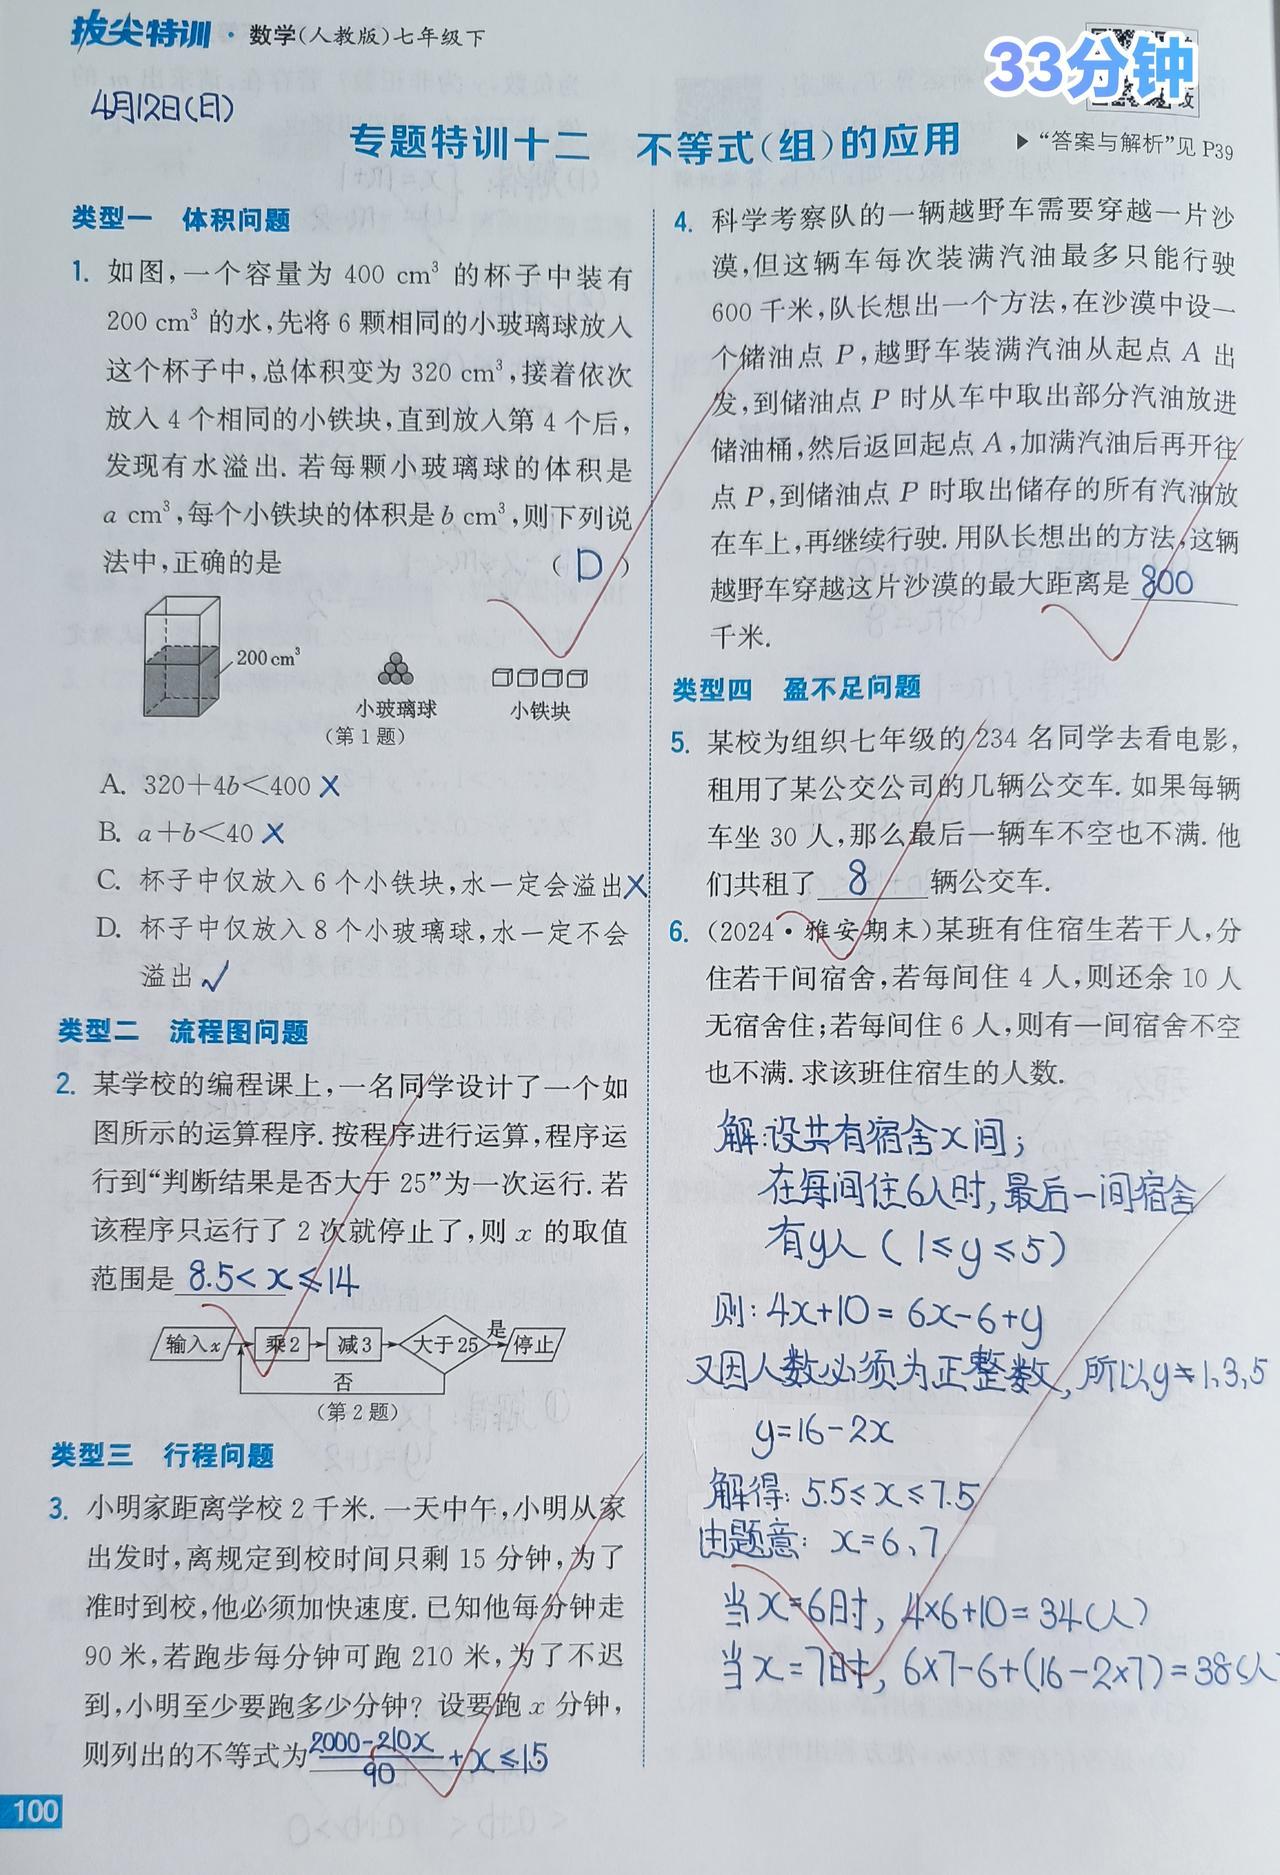 拔尖特训·数学(人教版)七年级下
33分钟
4月12日(日)
专题特训十二 不等式(组)的应用
▶“答案与解析”见 P39
类型一 体积问题
1. 如图,一个容量为 400 cm³ 的杯子中装有
200 cm³ 的水,先将 6 颗相同的小玻璃球放入
这个杯子中,总体积变为 320 cm³,接着依次
放入 4 个相同的小铁块,直到放入第 4 个后,
发现有水溢出. 若每颗小玻璃球的体积是
a cm³,每个小铁块的体积是 b cm³,则下列说
法中,正确的是 ( D )
200 cm³
小玻璃球
小铁块
(第 1 题)
A. 320+4b<400 ×
B. a+b<40 ×
C. 杯子中仅放入 6 个小铁块,水一定会溢出 ×
D. 杯子中仅放入 8 个小玻璃球,水一定不会
溢出 √
类型二 流程图问题
2. 某学校的编程课上,一名同学设计了一个如
图所示的运算程序. 按程序进行运算,程序运
行到“判断结果是否大于 25”为一次运行. 若
该程序只运行了 2 次就停止了,则 x 的取值
范围是 8.5< x ≤14
输入x 乘2 减3 大于25 是 停止
否
(第 2 题)
类型三 行程问题
3. 小明家距离学校 2 千米. 一天中午,小明从家
出发时,离规定到校时间只剩 15 分钟,为了
准时到校,他必须加快速度. 已知他每分钟走
90 米,若跑步每分钟可跑 210 米,为了不迟
到,小明至少要跑多少分钟? 设要跑 x 分钟,
则列出的不等式为 (2000-210x)/90 + x ≤15
100
4. 科学考察队的一辆越野车需要穿越一片沙
漠,但这辆车每次装满汽油最多只能行驶
600 千米,队长想出一个方法,在沙漠中设一
个储油点 P,越野车装满汽油从起点 A 出
发,到储油点 P 时从车中取出部分汽油放进
储油桶,然后返回起点 A,加满汽油后再开往
点 P,到储油点 P 时取出储存的所有汽油放
在车上,再继续行驶. 用队长想出的方法,这辆
越野车穿越这片沙漠的最大距离是 800
千米.
类型四 盈不足问题
5. 某校为组织七年级的 234 名同学去看电影,
租用了某公交公司的几辆公交车. 如果每辆
车坐 30 人,那么最后一辆车不空也不满. 他
们共租了 8 辆公交车.
6. (2024·雅安期末)某班有住宿生若干人,分
住若干间宿舍,若每间住 4 人,则还余 10 人
无宿舍住;若每间住 6 人,则有一间宿舍不空
也不满. 求该班住宿生的人数.
解:设共有宿舍x间;
在每间住6人时,最后一间宿舍
有y人 (1≤y≤5)
则: 4x+10=6x-6+y
又因人数必须为正整数, 所以y=1,3,5
y=16-2x
解得: 5.5≤x≤7.5
由题意: x=6、7
当x=6时, 4×6+10=34(人)
当x=7时, 6×7-6+(16-2×7)=38(人